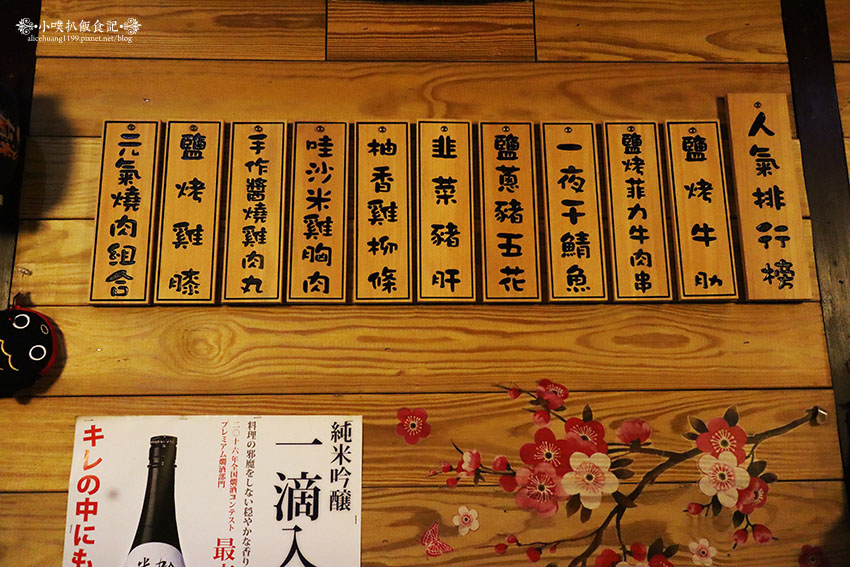 小噗趴飯食記
alicehuang1199.pixnet.net/blog
人氣排行榜
鹽烤牛肋
鹽烤菲力牛肉串
一夜干鯖魚
鹽蔥豬五花
韭菜豬肝
柚香雞柳條
哇沙米雞胸肉
手作醬燒雞肉丸
鹽烤雞膝
元氣燒肉組合
純米吟醸
一滴入
料理の邪魔をしない穏やかな香り
二〇十六年全国燗酒コンテスト
プレミアム燗酒部門
最
キレの中にも